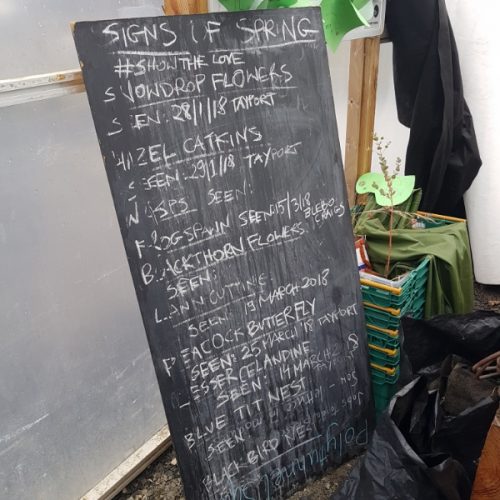 SIGNS OF SPRING
#SHOW THE LOVE
SNOWDROP FLOWERS
SEEN: 28/1/18 TAYPORT
HAZEL CATKINS
SEEN: 29/1/18 TAYPORT
WASPS SEEN:
FROGSPAWN SEEN 15/3/18
BLEBO CRAIGS
BLACKTHORN FLOWERS
SEEN:
LAWN CUTTING
SEEN 13 MARCH 2018
PEACOCK BUTTERFLY
SEEN: 25 MARCH 18 TAYPORT
LESSER CELANDINE
SEEN: 14 MARCH
TAYPORT
BLUE TIT NEST
SEEN:
BLACKBIRD NEST